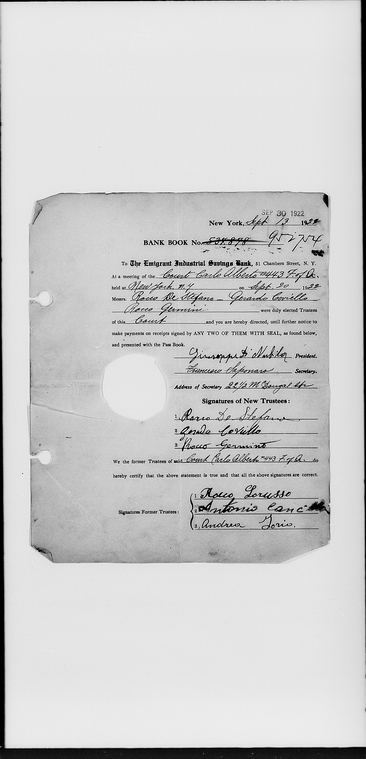 SEP 30 1922
New York, Sept. 13 1922
BANK BOOK No. 951754
To The Emigrant Industrial Savings Bank, 51 Chambers Street, N. Y.
At a meeting of the Court Carlo Alberto #443 F. of A.
held at New York N.Y. on Sept. 20 1922
Messrs. Rocco De Stefano - Gerardo Coviello
Rocco Germino were duly elected Trustees
of this Court and you are hereby directed, until further notice to
make payments on receipts signed by ANY TWO OF THEM WITH SEAL, as found below,
and presented with the Pass Book.
Giuseppe Di President.
Francesco Saponaro Secretary.
Address of Secretary McDougal Str
Signatures of New Trustees:
1. Rocco De Stefano
2. Gerardo Coviello
3. Rocco Germino
We the former Trustees of said Court Carlo Alberto #443 F. of A. do
hereby certify that the above statement is true and that all the above signatures are correct.
Signatures Former Trustees:
1. Rocco Lorusso
2. Antonio
3. Andrea Iorio.